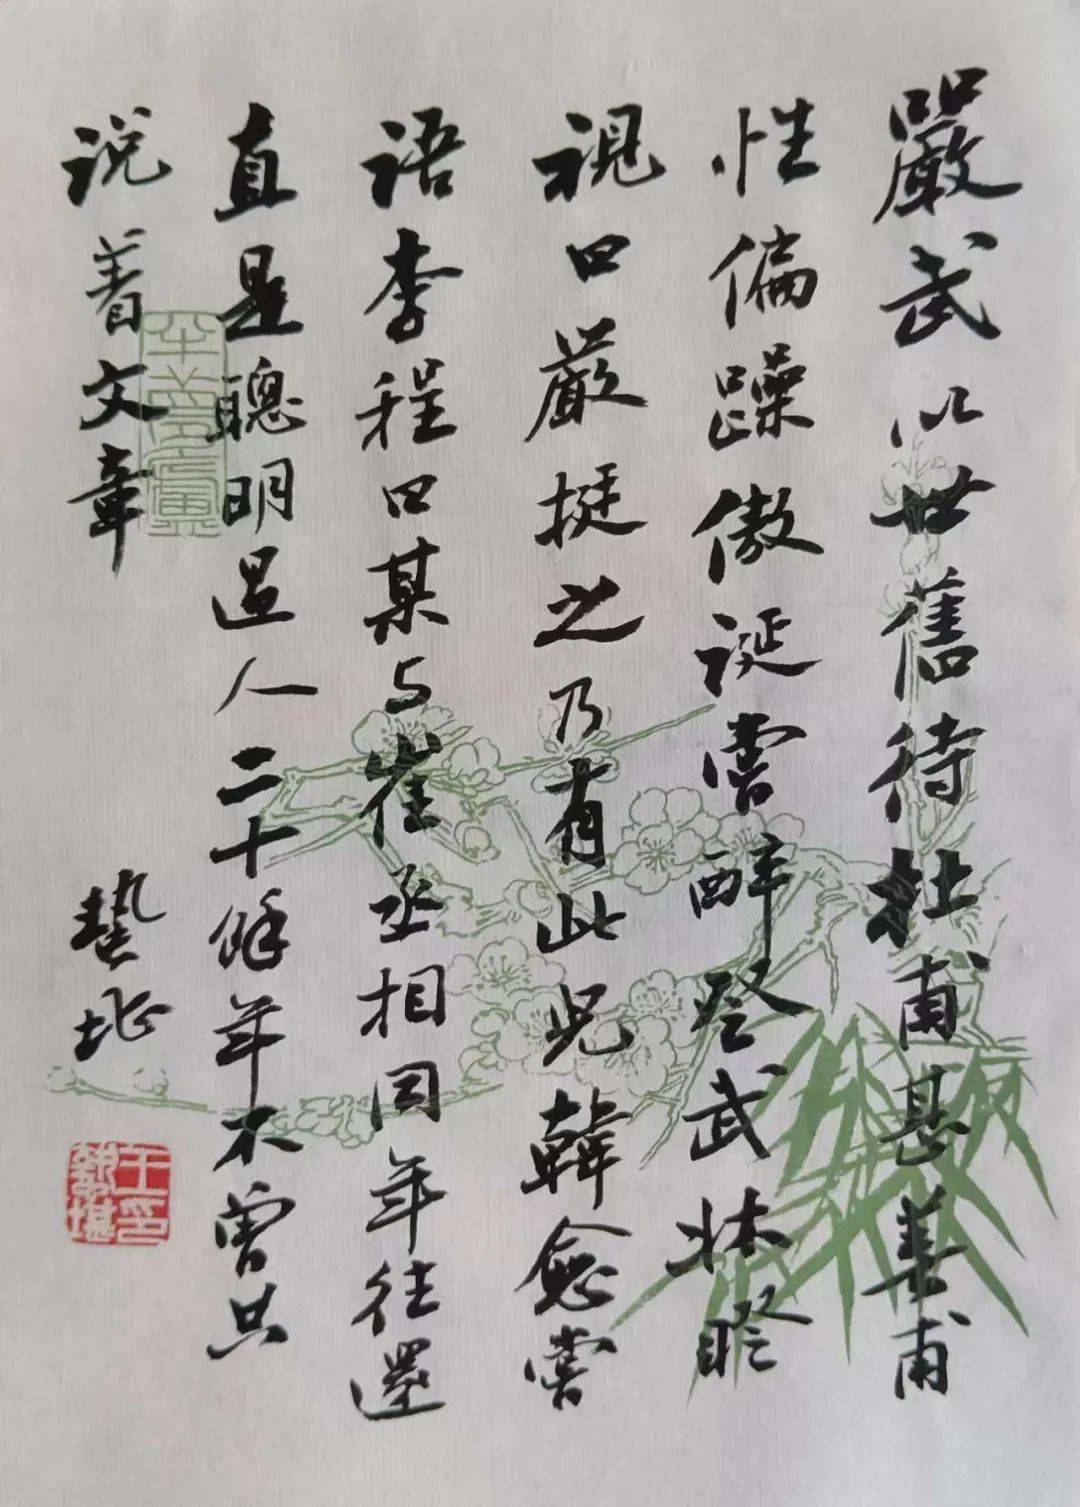 嚴武以世舊待杜甫甚善甫
性偏躁傲诞嘗醉登武牀瞪
視曰嚴挺之乃有此兒韓愈嘗
语李程曰某与崔丞相同年往還
直是聰明過人二十餘年不曾共
说著文章
蟄堪
王蟄堪印